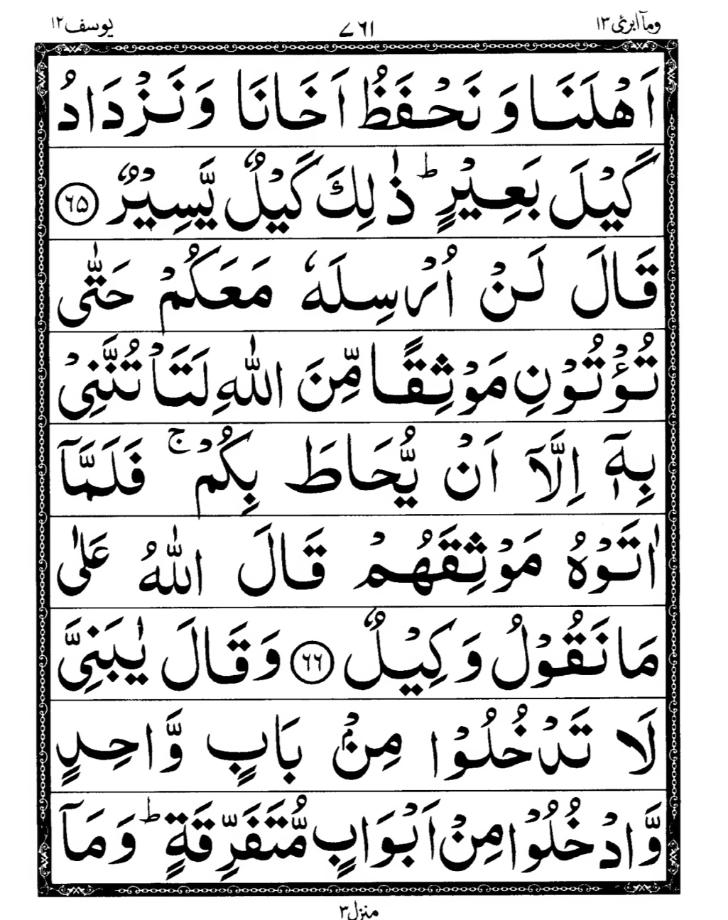 وماۤ ابرئ ١٣
٧٦١
یوسف ١٢
اَهْلَنَا وَ نَحْفَظُ اَخَانَا وَ نَزْدَادُ
كَیْلَ بَعِیْرٍؕ ذٰلِكَ كَیْلٌ یَّسِیْرٌ ﴿٦٥﴾
قَالَ لَنْ اُرْسِلَهٗ مَعَكُمْ حَتّٰی
تُؤْتُوْنِ مَوْثِقًا مِّنَ اللّٰهِ لَتَاْتُنَّنِیْ
بِهٖۤ اِلَّاۤ اَنْ یُّحَاطَ بِكُمْۚ فَلَمَّاۤ
اٰتَوْهُ مَوْثِقَهُمْ قَالَ اللّٰهُ عَلٰی
مَا نَقُوْلُ وَكِیْلٌ ﴿٦٦﴾ وَ قَالَ یٰبَنِیَّ
لَا تَدْخُلُوْا مِنْۢ بَابٍ وَّاحِدٍ
وَّادْخُلُوْا مِنْ اَبْوَابٍ مُّتَفَرِّقَةٍؕ وَ مَاۤ
منزل ٣